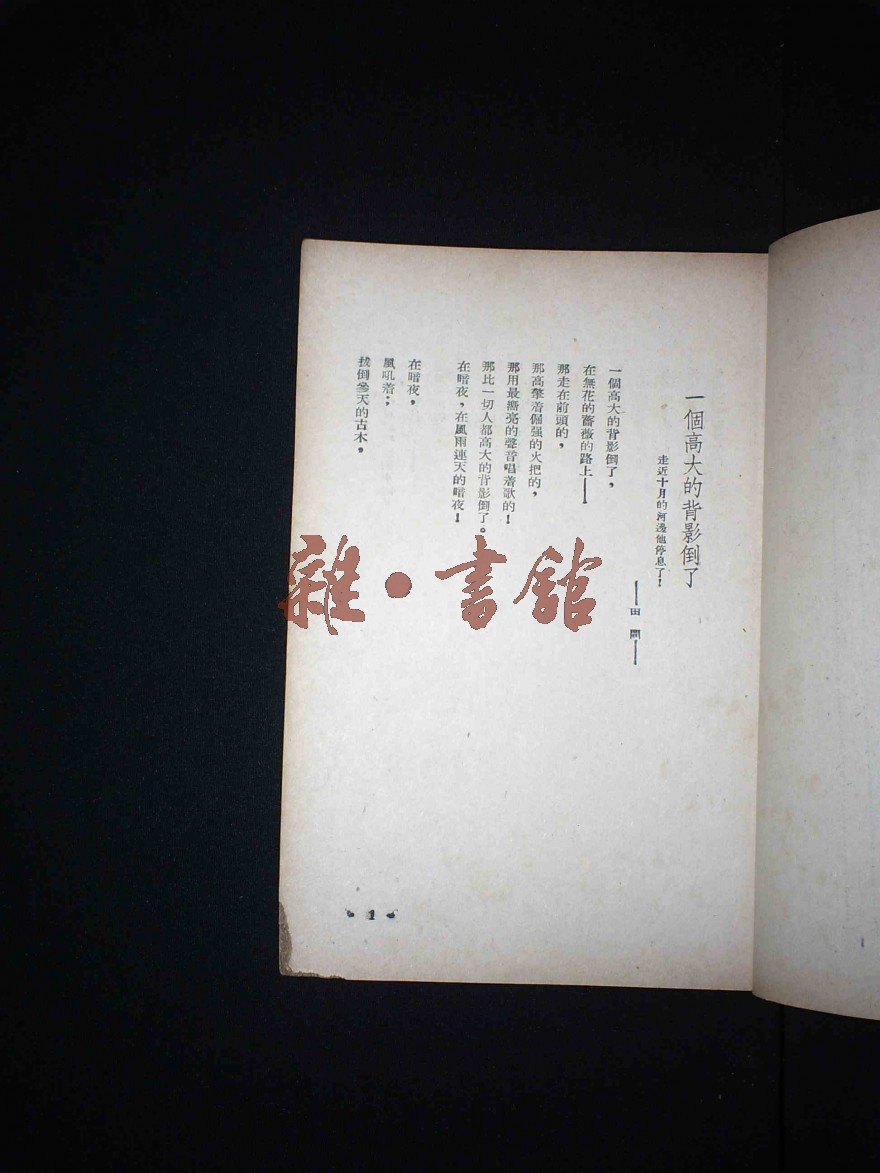 一個高大的背影倒了
走近十月的河邊他停息了！
——田間——
一個高大的背影倒了，
在無花的薔薇的路上——
那走在前頭的，
那高擎着倔强的火把的，
那用最響亮的聲音唱着歌的！
那比一切人都高大的背影倒了。
在暗夜，在風雨連天的暗夜！
在暗夜，
風吼着；
拔倒參天的古木，
1
雜·書館